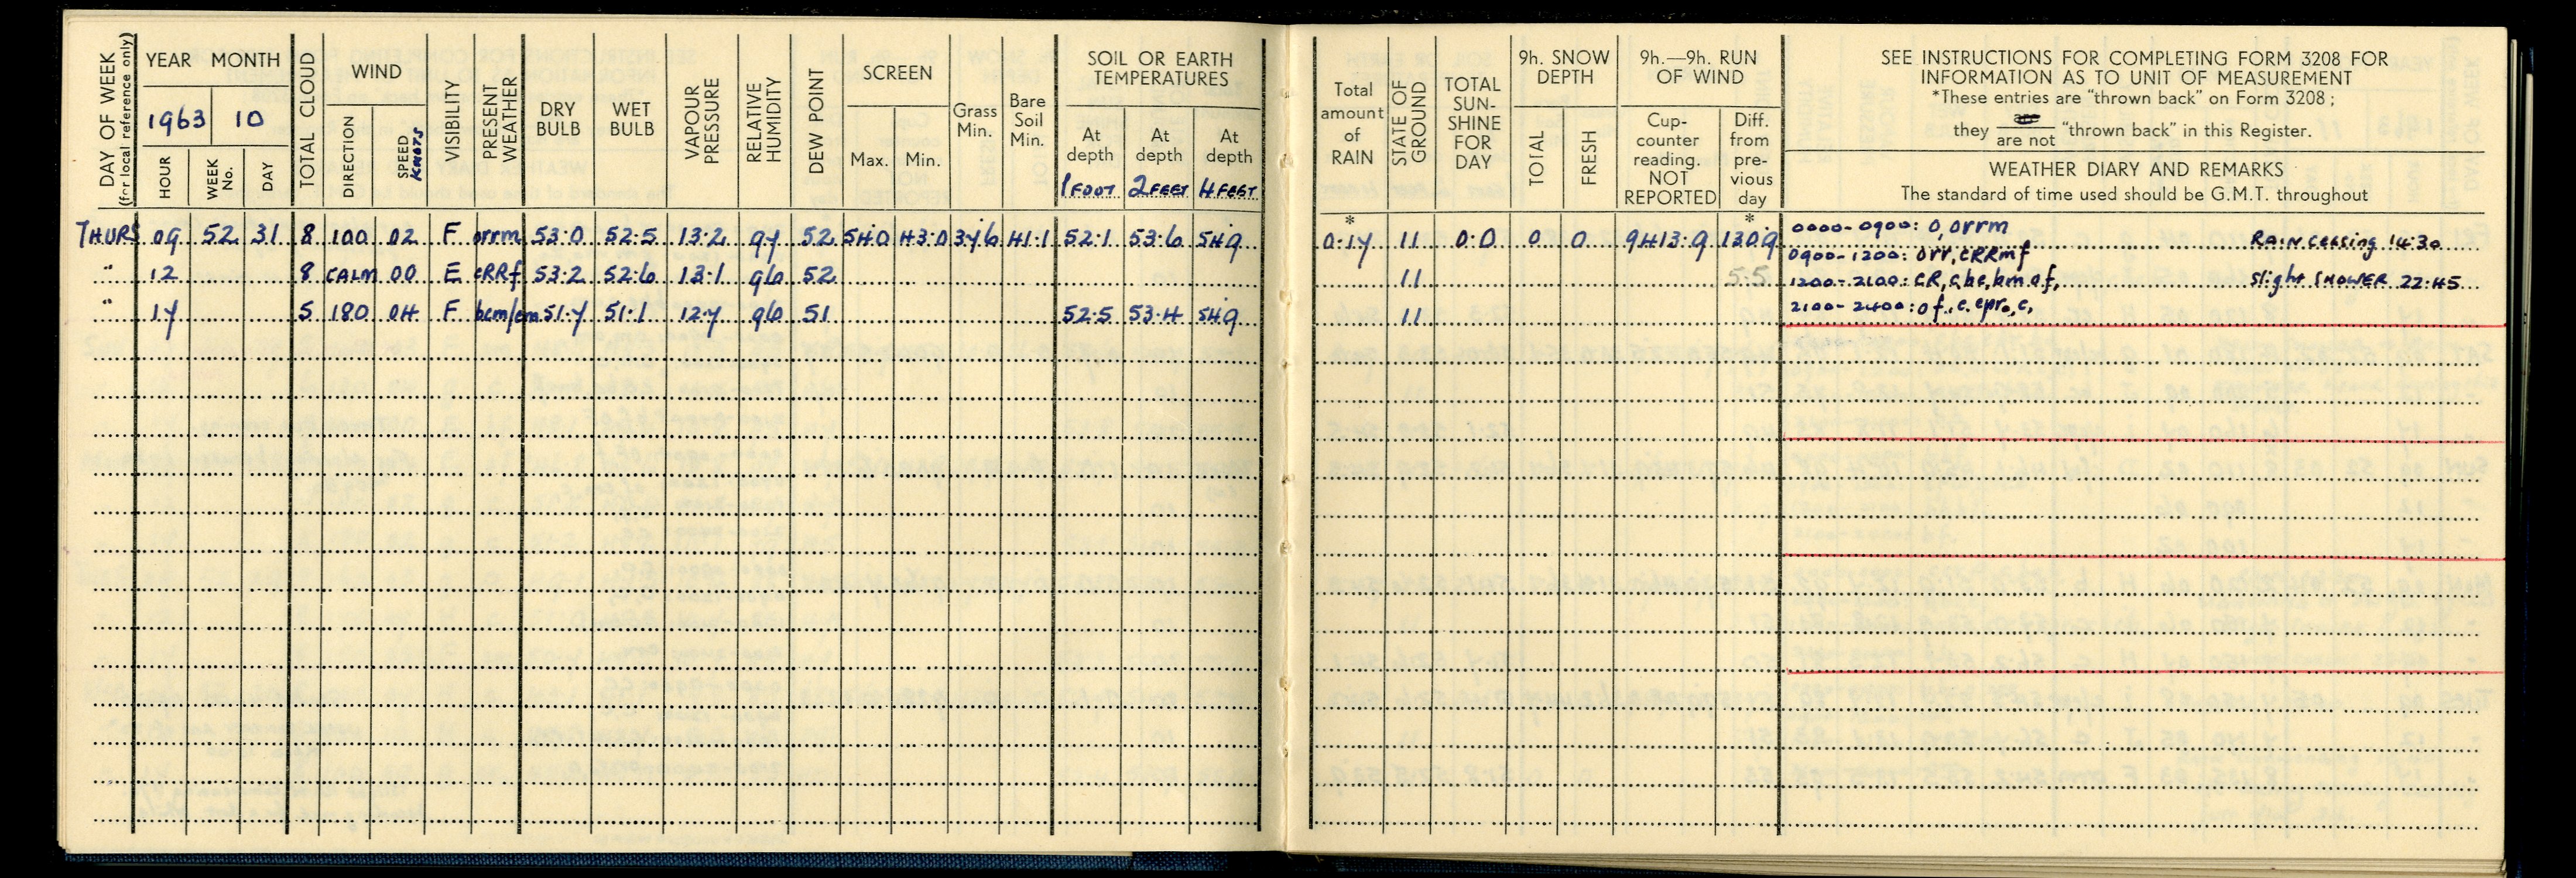 DAY OF WEEK
(for local reference only)
YEAR MONTH
1963 10
HOUR
WEEK No.
DAY
TOTAL CLOUD
WIND
DIRECTION
SPEED KNOTS
VISIBILITY
PRESENT WEATHER
DRY BULB
WET BULB
VAPOUR PRESSURE
RELATIVE HUMIDITY
DEW POINT
SCREEN
Max. Min.
Grass Min.
Bare Soil Min.
SOIL OR EARTH TEMPERATURES
At depth 1 FOOT
At depth 2 FEET
At depth 4 FEET
Total amount of RAIN
STATE OF GROUND
TOTAL SUN-SHINE FOR DAY
9h. SNOW DEPTH
TOTAL
FRESH
9h.—9h. RUN OF WIND
Cup-counter reading. NOT REPORTED
Diff. from pre-vious day
SEE INSTRUCTIONS FOR COMPLETING FORM 3208 FOR
INFORMATION AS TO UNIT OF MEASUREMENT
*These entries are "thrown back" on Form 3208 ;
they are / are not "thrown back" in this Register.
WEATHER DIARY AND REMARKS
The standard of time used should be G.M.T. throughout
THURS 09 52 31 8 100 02 F orrm 53·0 52·5 13·2 97 52 54·0 43·0 37·6 41·1 52·1 53·6 54·9 * 0·17 11 0·0 0 0 9413·9 * 130·9 0000-0900: o, orrm Rain Ceasing 14:30
0900-1200: orr, cRRmf
" 12 8 CALM 00 E cRRf 53·2 52·6 13·1 96 52 11 5·5 1200-2100: cR, c, bc, bm of, Slight SHOWER 22:45
" 17 5 180 04 F bcm/cm 51·7 51·1 12·7 96 51 52·5 53·4 54·9 11 2100-2400: of, c. cpr₀, c,